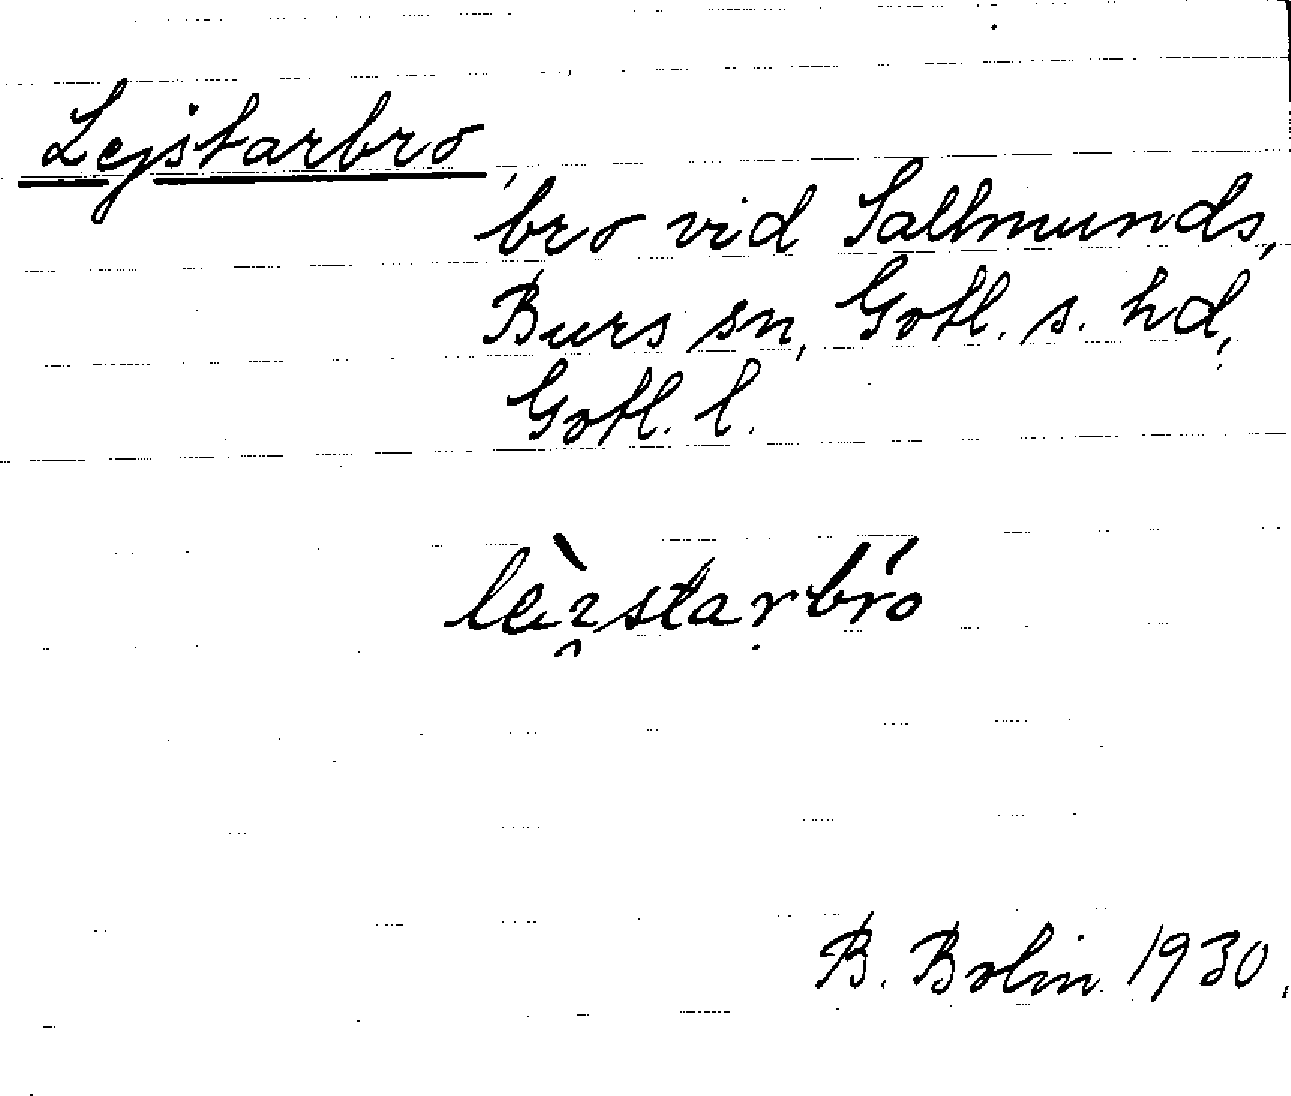 Lejstarbro,
bro vid Sallmunds,
Burs sn, Gotl. s. hd,
Gotl. l.
B. Bolin 1930.